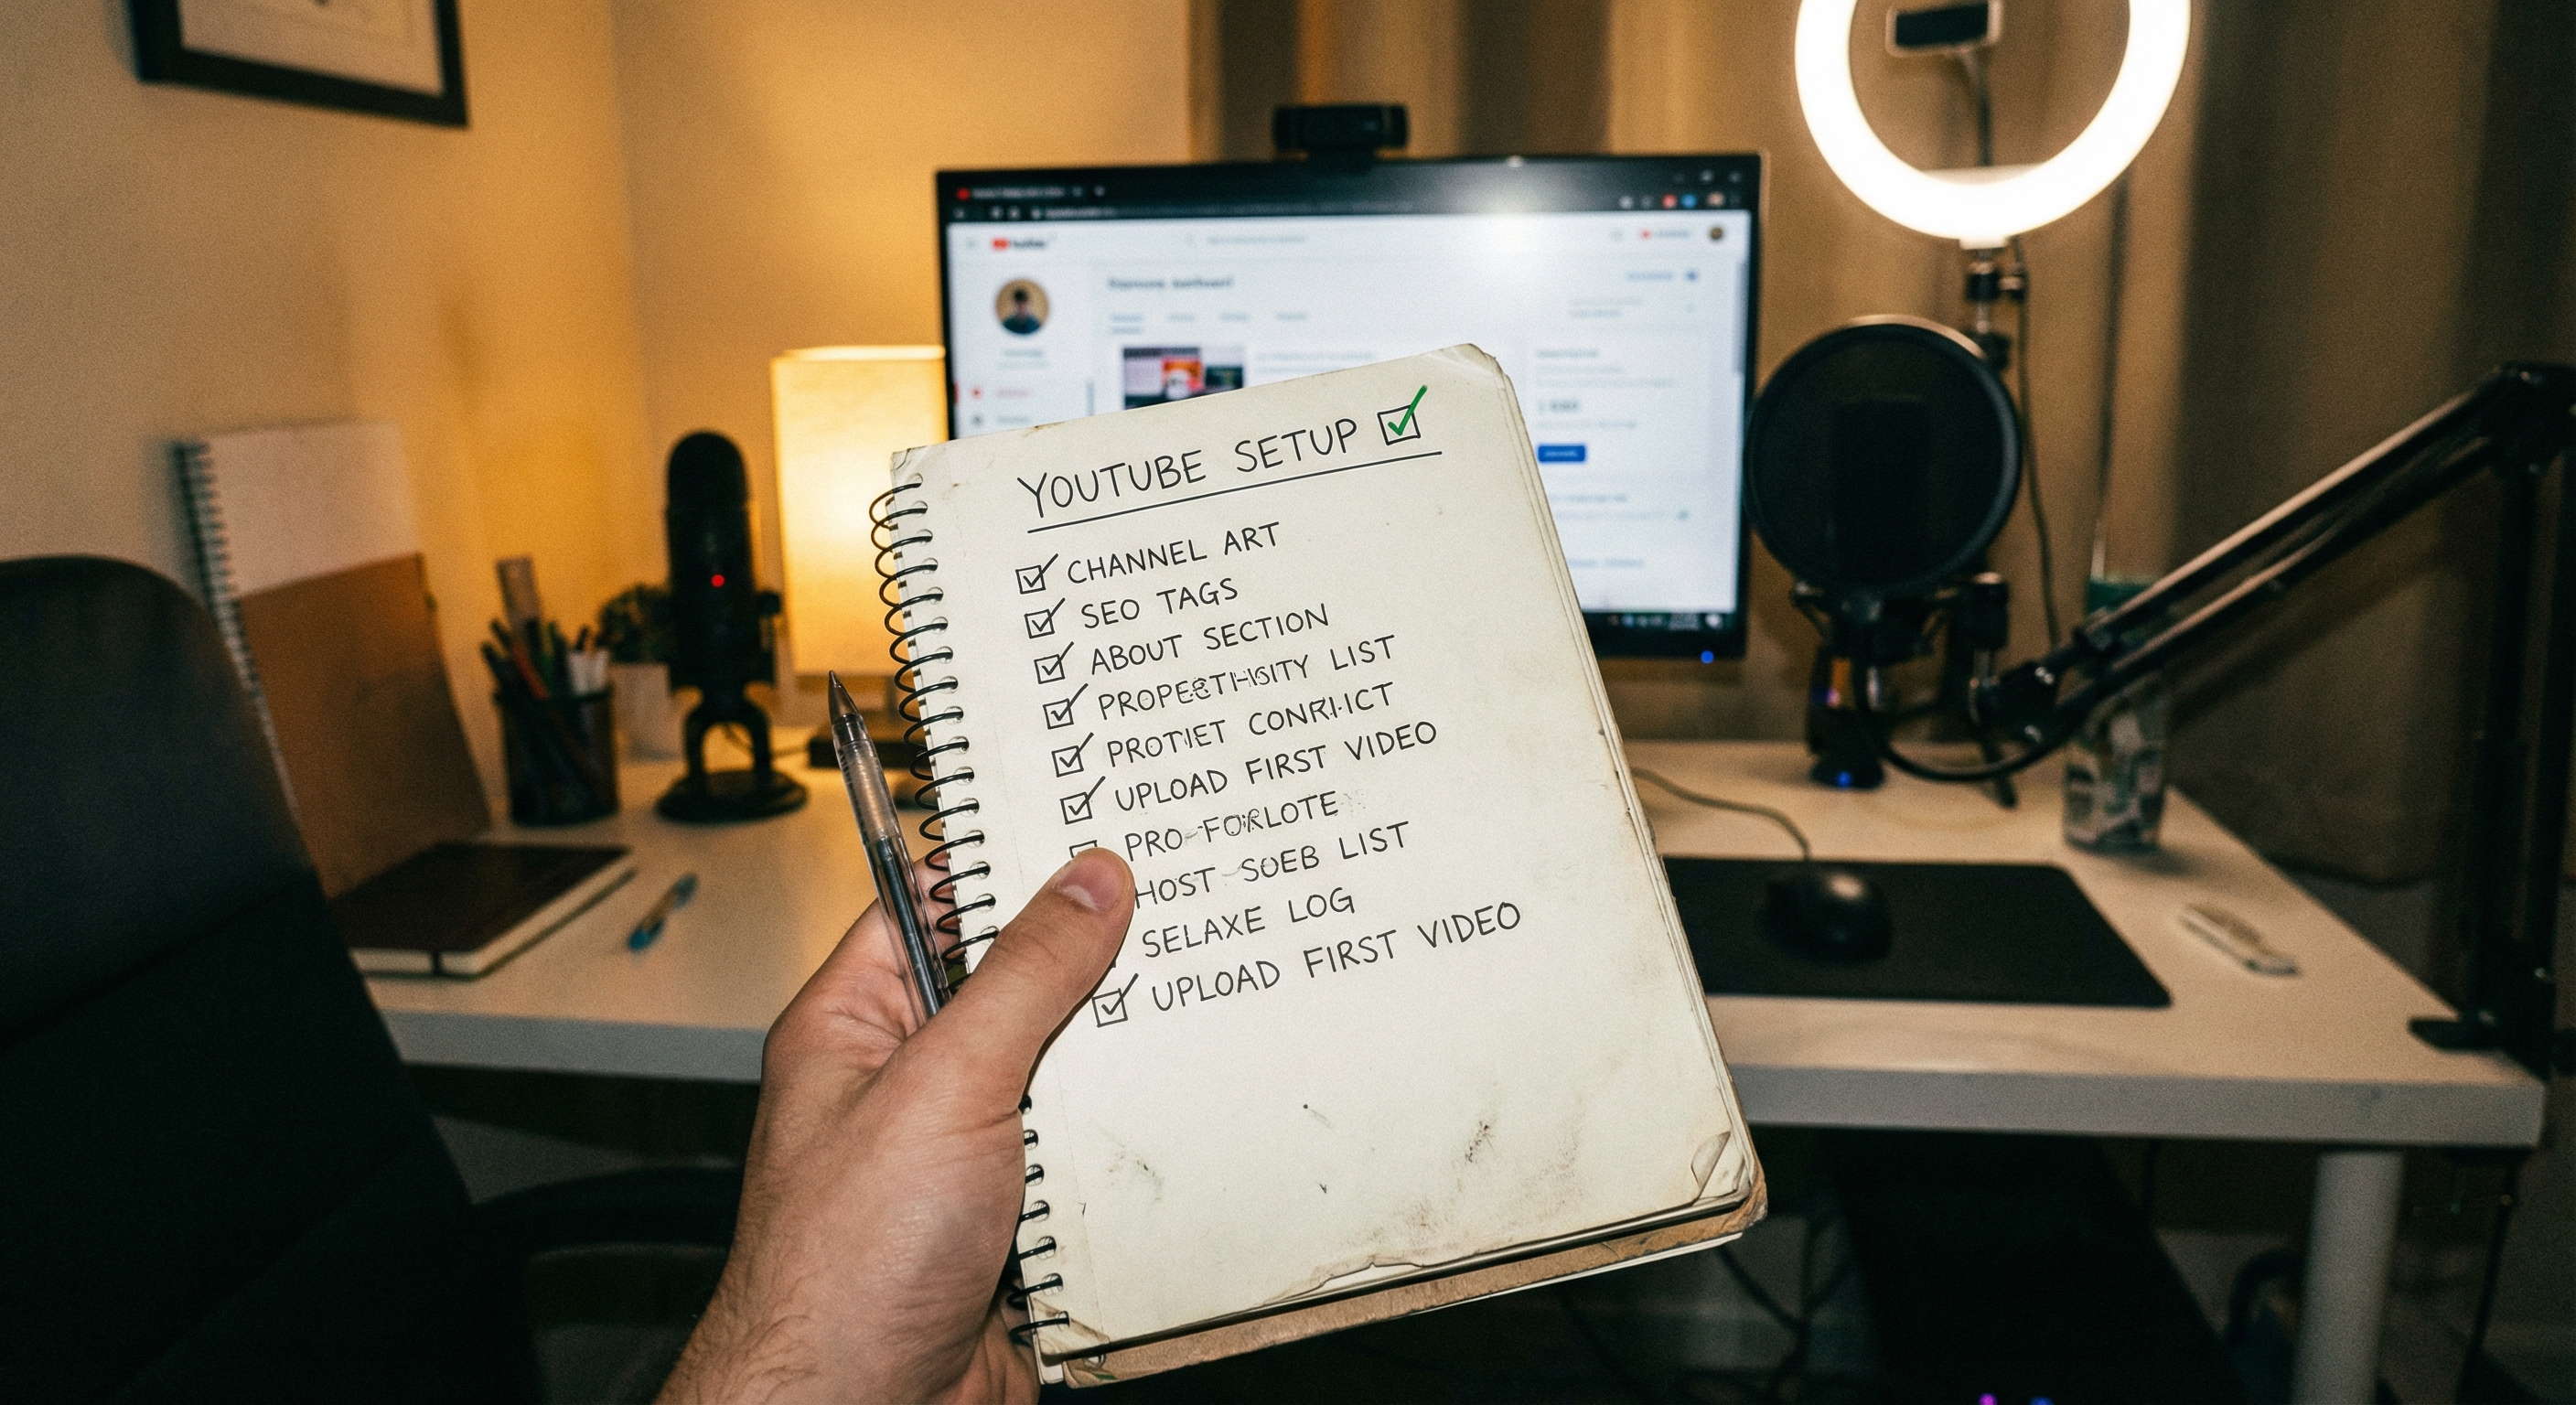 YOUTUBE SETUP
CHANNEL ART
SEO TAGS
ABOUT SECTION
LIST
PROTIET
UPLOAD FIRST VIDEO
PRO-FORLOTE
HOST SOEB LIST
SELAXE LOG
UPLOAD FIRST VIDEO